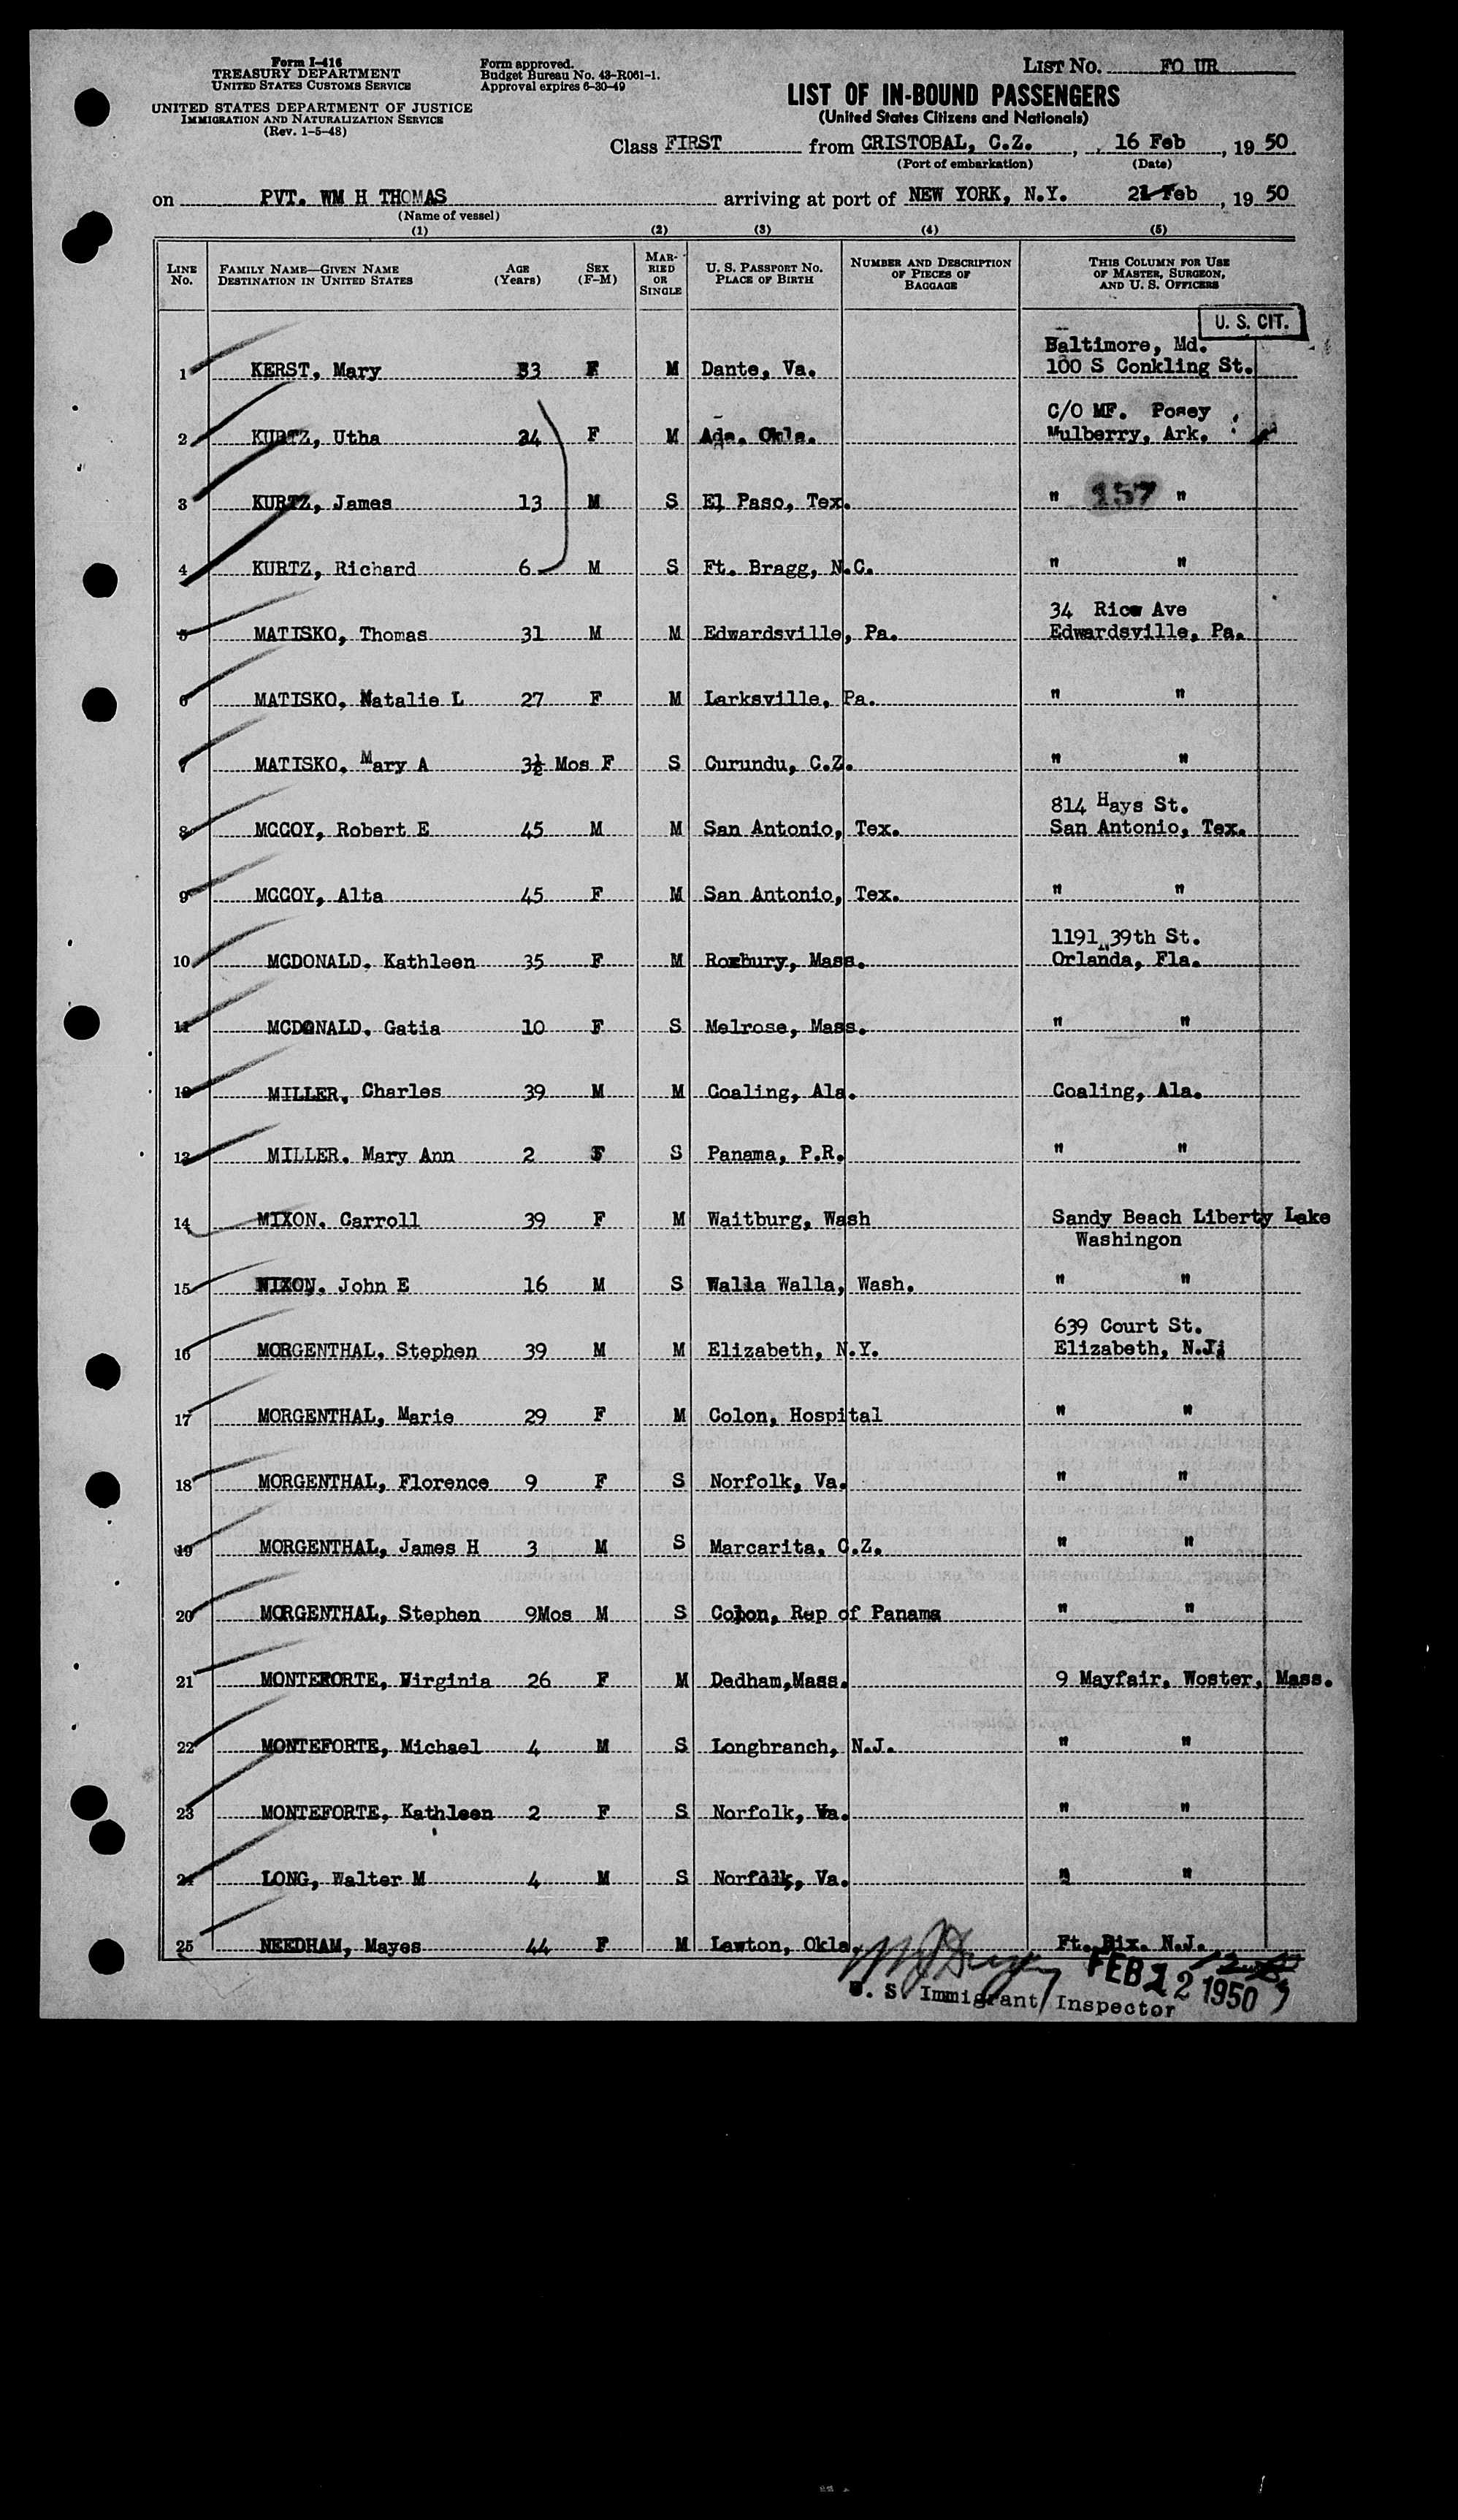 Form I-416
TREASURY DEPARTMENT
UNITED STATES CUSTOMS SERVICE
UNITED STATES DEPARTMENT OF JUSTICE
IMMIGRATION AND NATURALIZATION SERVICE
(Rev. 1-5-48)
Form approved.
Budget Bureau No. 43-R061-1.
Approval expires 6-30-49
LIST NO. FO UR
LIST OF IN-BOUND PASSENGERS
(United States Citizens and Nationals)
Class FIRST from CRISTOBAL, C.Z. , 16 Feb , 19 50
(Port of embarkation) (Date)
on PVT. WM H THOMAS arriving at port of NEW YORK, N.Y. Feb , 19 50
(Name of vessel)
(1) (2) (3) (4) (5)
LINE NO. FAMILY NAME—GIVEN NAME DESTINATION IN UNITED STATES AGE (Years) SEX (F-M) MARRIED OR SINGLE U. S. PASSPORT NO. PLACE OF BIRTH NUMBER AND DESCRIPTION OF PIECES OF BAGGAGE THIS COLUMN FOR USE OF MASTER, SURGEON, AND U. S. OFFICERS
U. S. CIT.
Baltimore, Md.
1 KERST, Mary F M Dante, Va. 100 S Conkling St.
C/O MF. Posey
2 KURTZ, Utha F M Ada, Okla. Mulberry, Ark.
3 KURTZ, James 13 M S El Paso, Tex. " 157 "
4 KURTZ, Richard 6 M S Ft. Bragg, N.C. " "
34 Rice Ave
5 MATISKO, Thomas 31 M M Edwardsville, Pa. Edwardsville, Pa.
6 MATISKO, Natalie L 27 F M Larksville, Pa. " "
7 MATISKO, Mary A 3½ Mos F S Curundu, C.Z. " "
814 Hays St.
8 MCCOY, Robert E 45 M M San Antonio, Tex. San Antonio, Tex.
9 MCCOY, Alta 45 F M San Antonio, Tex. " "
1191 N 39th St.
10 MCDONALD, Kathleen 35 F M Roxbury, Mass. Orlanda, Fla.
11 MCDONALD, Gatia 10 F S Melrose, Mass. " "
12 MILLER, Charles 39 M M Coaling, Ala. Coaling, Ala.
13 MILLER, Mary Ann 2 F S Panama, P.R. " "
14 MIXON, Carroll 39 F M Waitburg, Wash Sandy Beach Liberty Lake
Washingon
15 John E 16 M S Walla Walla, Wash. " "
639 Court St.
16 MORGENTHAL, Stephen 39 M M Elizabeth, N.Y. Elizabeth, N.J.
17 MORGENTHAL, Marie 29 F M Colon, Hospital " "
18 MORGENTHAL, Florence 9 F S Norfolk, Va. " "
19 MORGENTHAL, James H 3 M S Marcarita, C.Z. " "
20 MORGENTHAL, Stephen 9Mos M S Colon, Rep of Panama " "
21 MONTEFORTE, Virginia 26 F M Dedham,Mass. 9 Mayfair, Woster, Mass.
22 MONTEFORTE, Michael 4 M S Longbranch, N.J. " "
23 MONTEFORTE, Kathleen 2 F S Norfolk, Va. " "
24 LONG, Walter M 4 M S Norfolk, Va. " "
25 NEEDHAM, Mayes 44 F M Lawton, Okla. Ft. Dix. N.J.
FEB 1950
U. S. Immigrant Inspector